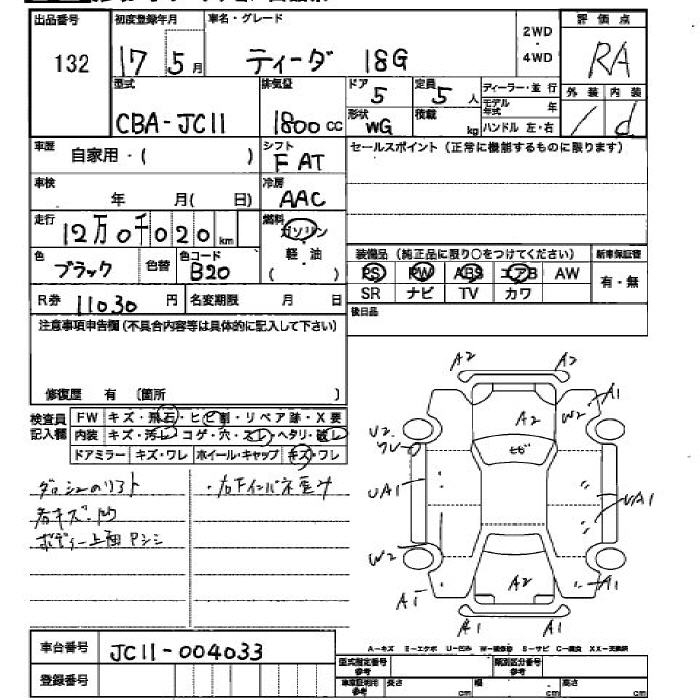 出品番号 初度登録年月 車名・グレード 2WD・4WD 評価点
132 17 5月 ティーダ 18G RA
型式 排気量 ドア 定員 ディーラー・並行 外装 内装
CBA-JC11 1800cc 5 5人 モデル年式 年 / d
形状 積載 ハンドル 左・右
WG kg
車歴 自家用・( ) シフト FAT セールスポイント(正常に機能するものに限ります)
車検 年 月( 日) 冷房 AAC
走行 12万0千020km 燃料 ガソリン・軽油・( )
色 ブラック 色替 色コード B20
装備品(純正品に限り○をつけてください) 新車保証書
PS PW ABS エアB AW 有・無
SR ナビ TV カワ
R券 11030円 名変期限 月 日 後日品
注意事項申告欄(不具合内容等は具体的に記入して下さい)
修復歴 有 〔箇所 〕
検査員記入欄 FW キズ・飛石・ヒビ割・リペア跡・X要
内装 キズ・汚レ・コゲ・穴・スレ・ヘタリ・破レ
ドアミラー キズ・ワレ ホイール・キャップ キズ・ワレ
A2 A2
A1
A2 W2
U2
ワレ
ヒビ
UA1 UA1
W2
A1 A2 A1
A1 A1
ボディー上面
A-キズ E-エクボ U-凹み S-サビ C-腐食 XX-交換済
車台番号 JC11-004033
登録番号
型式指定番号 参考 類別区分番号 参考
車庫証明用 参考 長さ cm 幅 cm 高さ cm